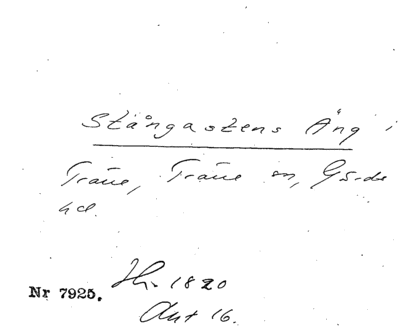 Stångastens Äng i
Träne, Träne sn, Gärds
hd.
Hr 1820
Nr 7925.
Akt 16.